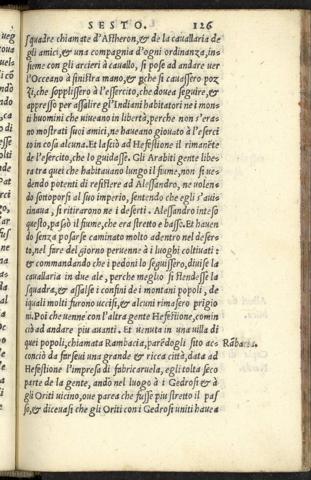 SESTO. 126
squadre chiamate d'Assheron, & de la cauallaria de
gli amici, & una compagnia d'ogni ordinanza, in-
sieme con gli arcieri à cauallo, si pose ad andare uer
l'Occeano à sinistra mano, & ꝑche si cauassero poz
zi, che sopplissero à l'esercito, che douea seguire, &
appresso per assalire gl'Indiani habitatori ne i mon-
ti huomini che uiueano in libertà, perche non s'era-
no mostrati suoi amici, ne haueano giouato à l'eserci
to in cosa alcuna. Et lasciò ad Hefestione il rimanẽte
de l'esercito, che lo guidasse. Gli Arabiti gente libe-
ra tra quei che habitauano lungo il fiume, non si ue-
dendo potenti di resistere ad Alessandro, ne uolen-
do sottoporsi al suo imperio, sentendo che egli s'aui-
cinaua, si ritirarono ne i deserti. Alessandro inteso
questo, passò il fiume, che era stretto e basso. Et hauen
do senza posarse caminato molto adentro nel deser-
to, nel fare del giorno peruenne à i luoghi coltiuati:
et commandando che i pedoni lo seguissero, diuise la
cauallaria in due ale, perche meglio si stendesse la
squadra, & assalse i confini de i montani popoli, de
i quali molti furono uccisi, & alcuni rimasero prigio
ni. Poi che uenne con l'altra gente Hefestione, comin
ciò ad andare piu auanti. Et uenuto in una uilla di
quei popoli, chiamata Rambacia, parẽdogli sito ac-
Rãbacia.
conciò da farseui una grande et ricca città, data ad
Hefestione l'impresa di fabricaruela, egli tolta seco
parte de la gente, andò nel luogo à i Gedrosi & à
gli Oriti uicino, oue parea che fusse piu stretto il pas
so, & diceuasi che gli Oriti con i Gedrosi uniti hauea